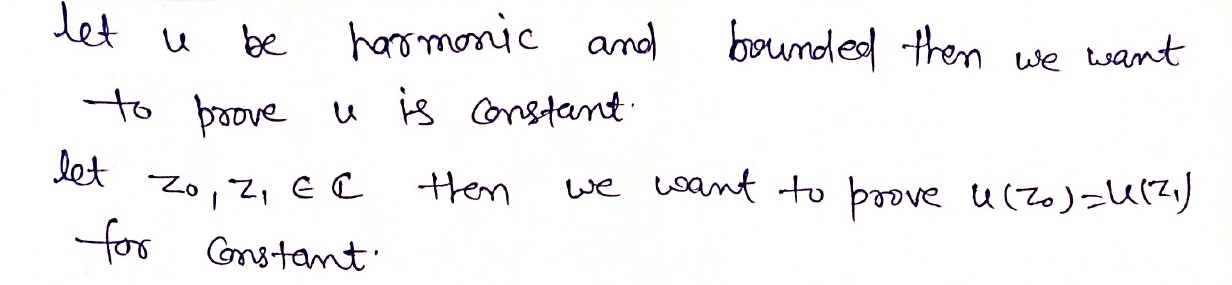 let u be harmonic and bounded then we want
to prove u is constant.
let z₀, z₁ ∈ ℂ then we want to prove u(z₀)=u(z₁)
for constant.